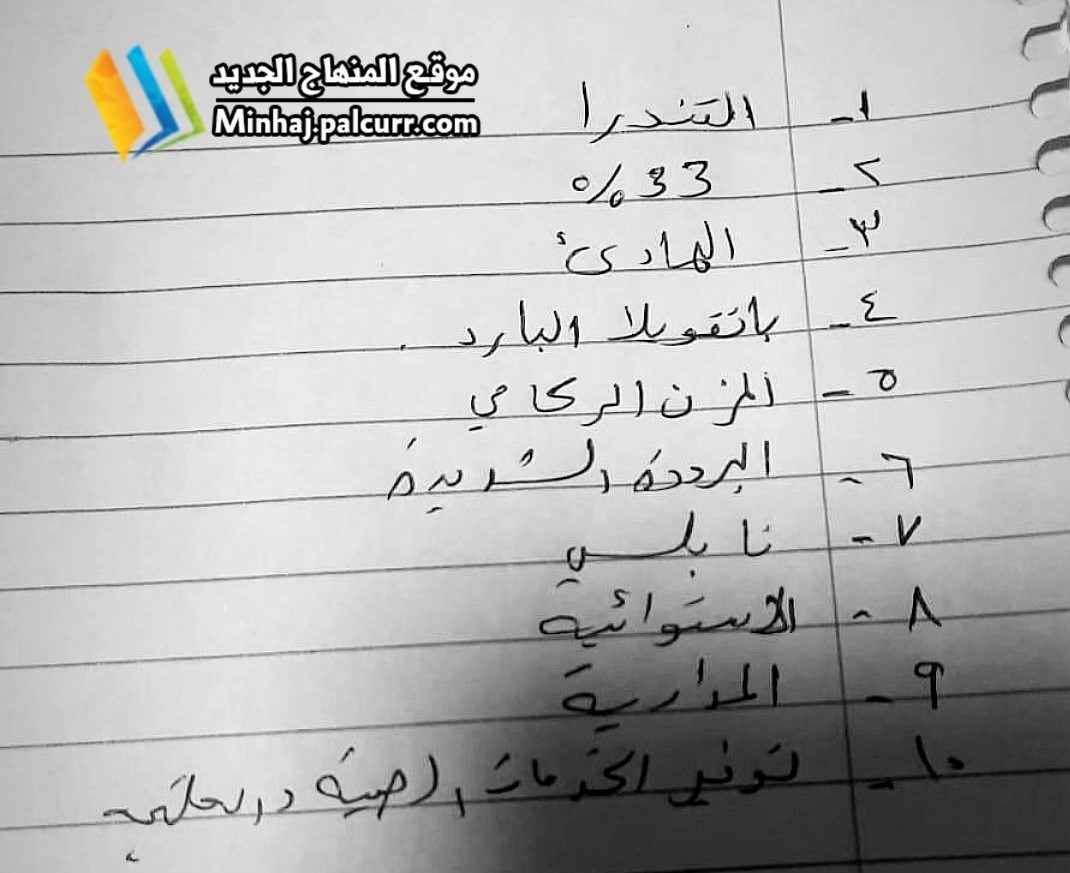 موقع المنهاج الجديد
Minhaj.palcurr.com
١- التندرا
٢- 33%
٣- الهادئ
٤- باتقويلا البارد.
٥- المزن الركامي
٦- البرودة الشديدة
٧- نابلس
٨- الاستوائية
٩- المدارية
١٠- توفير الخدمات الصحية والتعليمية